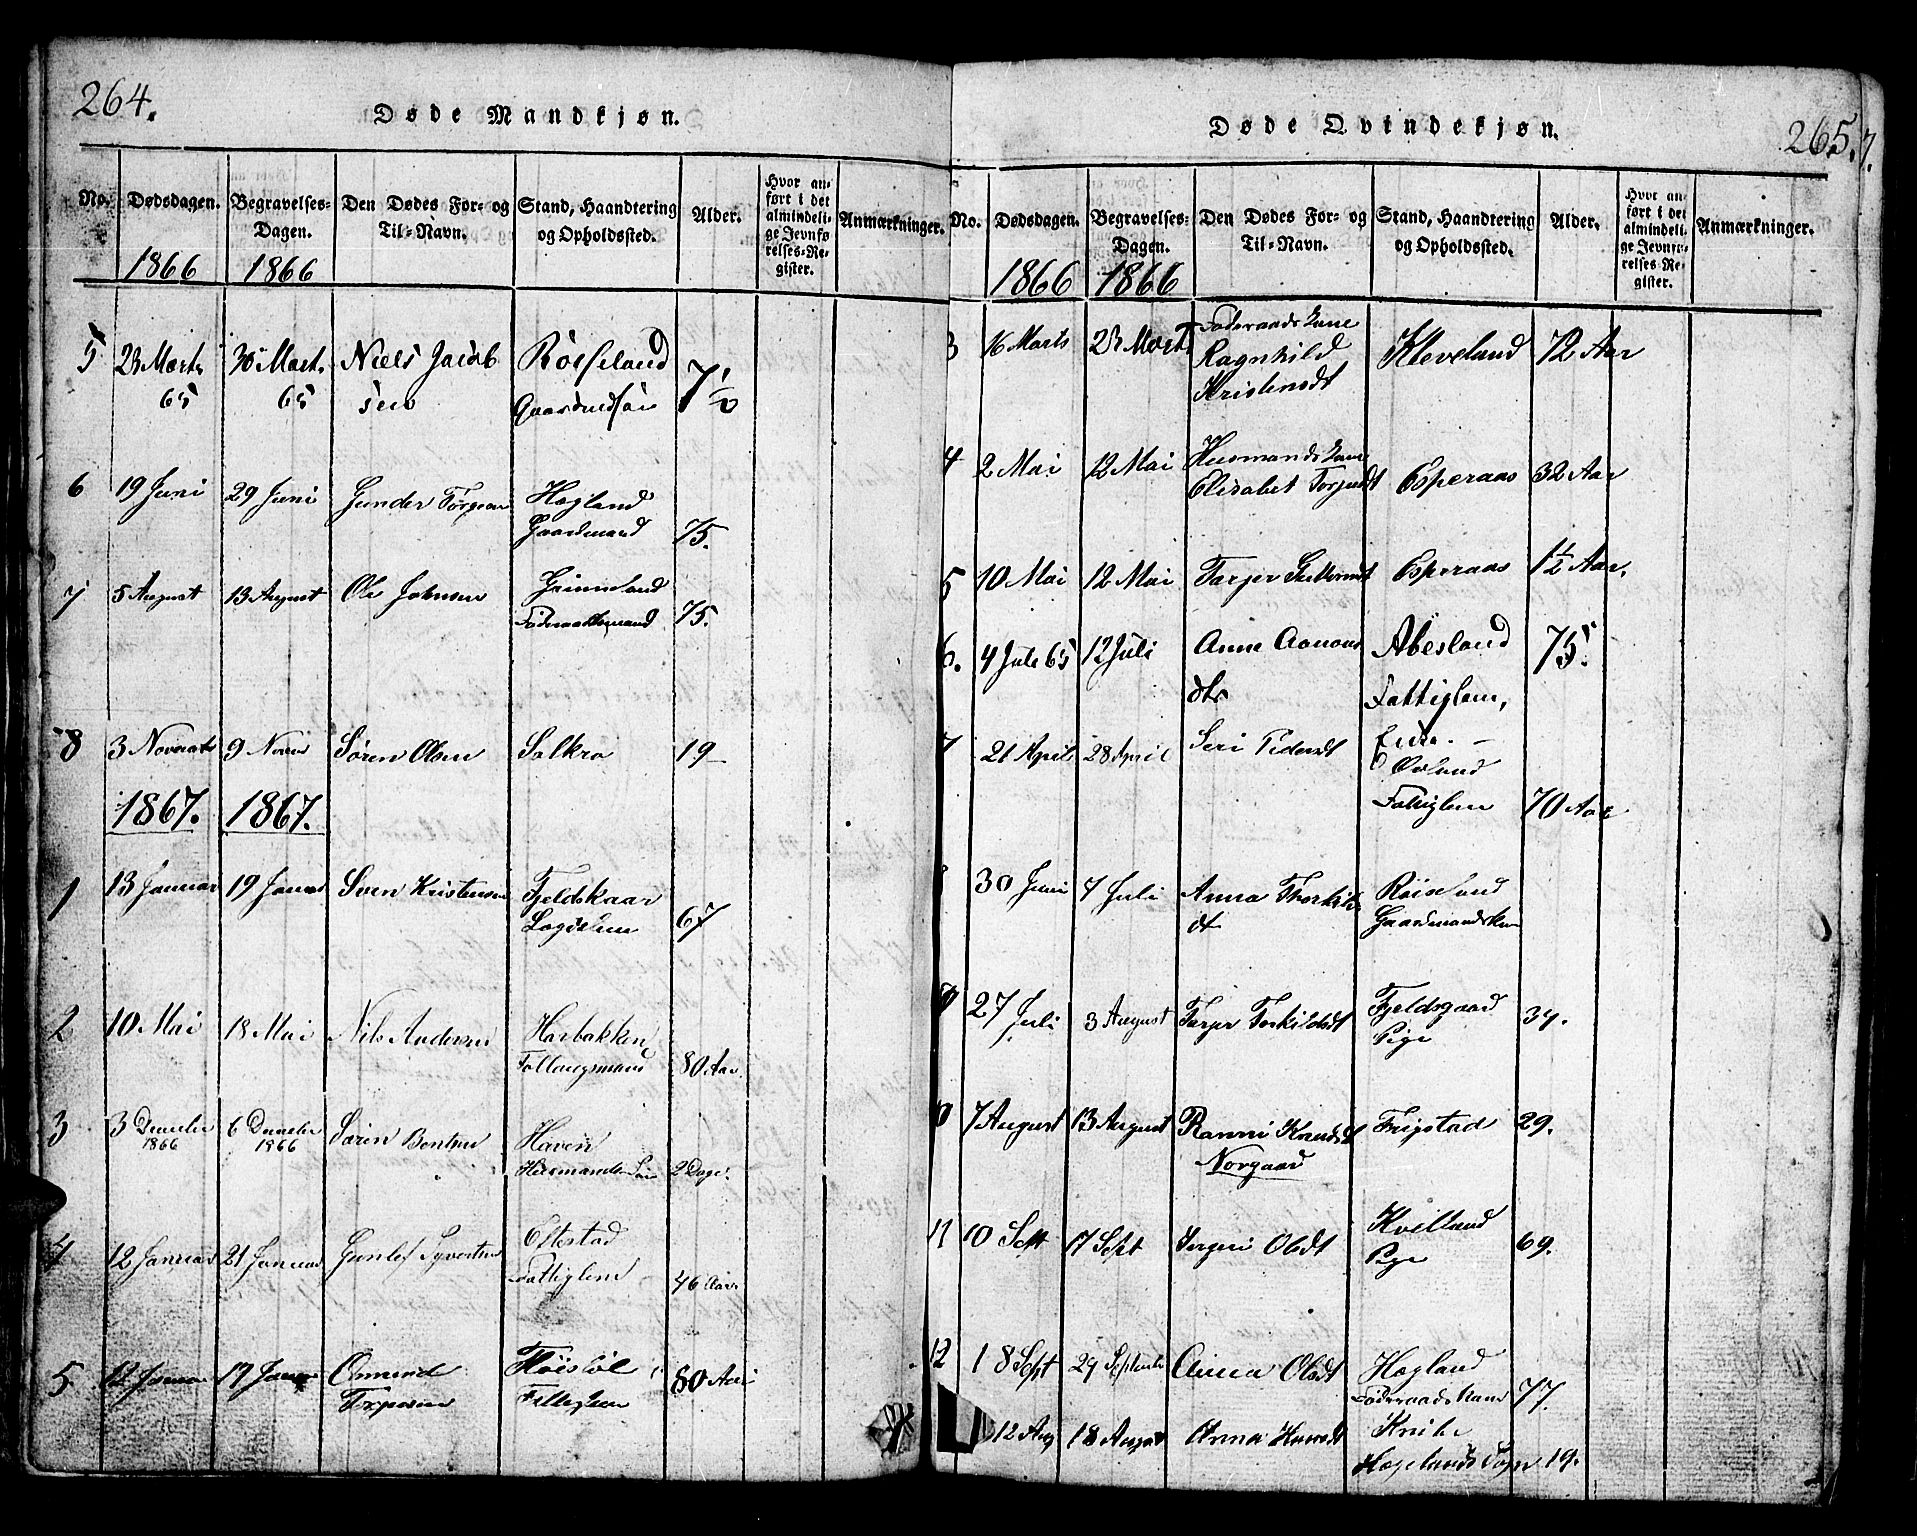 264.
Døde Mandkjøn.
No. Dødsdagen. Begravelses-Dagen. Den Dødes For- og Til-Navn. Stand, Haandtering og Opholdssted. Alder. Hvor anført i det almindelige Jevnførelses-Register. Anmærkninger.
1866 1866
5 23 Marts 65 30 Mart. 65 Niels Jacobsen Røsseland Gaardmdsøn 7 1/2
6 19 Juni 29 Juni Gunder Torgesen Hægland Gaardmand 75.
7 5 August 13 August Ole Johnsen Grimeland Føderaadsmand 75.
8 3 November 9 Novem Søren Olsen Solkra 19
1867. 1867.
1 13 Januar 19 Januar Sven Kristensen Fjeldskaar Lægdslem 67
2 10 Mai 18 Mai Nils Andersen Harbakken 80 Aar.
3 3 December 1866 6 December 1866 Søren Bentsen Haven Huusmands Søn 2 Dage.
4 12 Januar 21 Januar Gunlef Syvertsen Eftestad Fattiglem 46 Aar.
5 12 Januar 17 Januar Omund Torgesen Høiebøl Fattiglem 80 Aar
265.
7.
Døde Qvindekjøn.
No. Dødsdagen. Begravelses-Dagen. Den Dødes For- og Til-Navn. Stand, Haandtering og Opholdssted. Alder. Hvor anført i det almindelige Jevnførelses-Register. Anmærkninger.
1866 1866
3 16 Marts 23 Mart Føderaadskone Ragnhild Kristensdt Kleveland 72 Aar
4 2 Mai 12 Mai Huusmandskone Elisabet Torjusdt Esperaas 32 Aar
5 10 Mai 12 Mai Tarjer Esperaas 1 1/2 Aar.
6. 4 Juli 65 12 Juli Anne Aanonsdtr Abesland Fattiglem, 75.
7 21 April 28 April Seri Pedersdt Øvland Fattiglem 70 Aar
30 Juni 7 Juli Anna Thorkildsdt Røiseland Gaardmandskone
9 27 Juli 3 August Tarjer Torkildsdt Fjeldsgaard Pige 34.
0 7 August 13 August Ranni Knudsdt Norgaard Frigstad 29.
11 10 Sept 17 Sept Jorgeri Olsdt Kvilland Pige 69.
12 18 Sept 29 September Anna Olsdt Hægland Føderaadskone 77.
12 Aug 18 August Anna Knudsdt Knibe Hægelands Sogn 19.